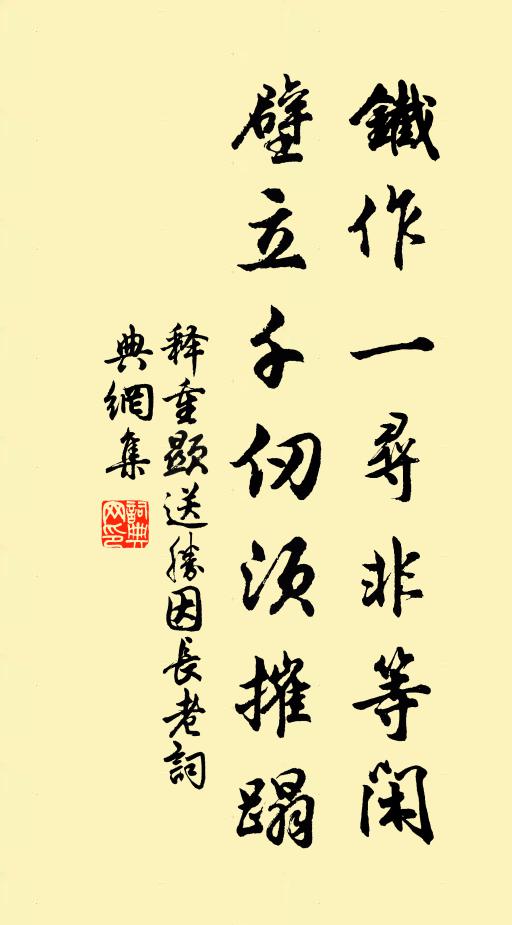 鐵作一尋非等閑
壁立千仞須摧蹋
释重顯送勝因長老詞
典網集
詞典
网印